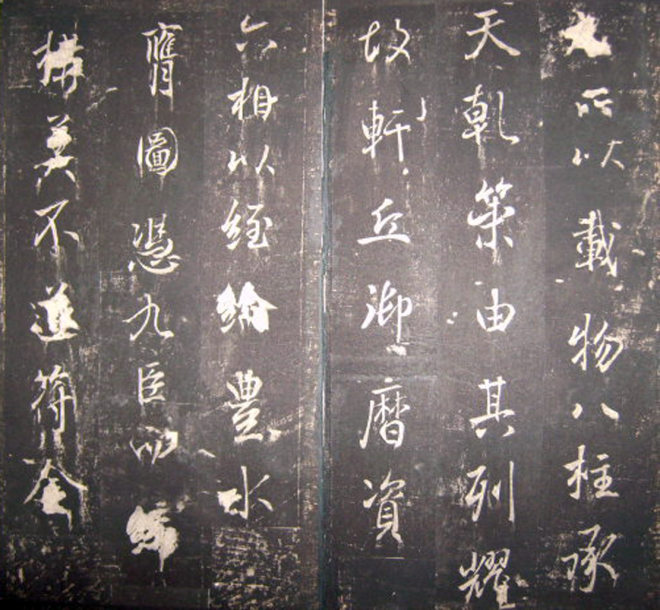 所以載物八柱承
天乾策由其列耀
故軒丘御曆資
六相以經綸豐水
膺圖憑九臣而締
構莫不符